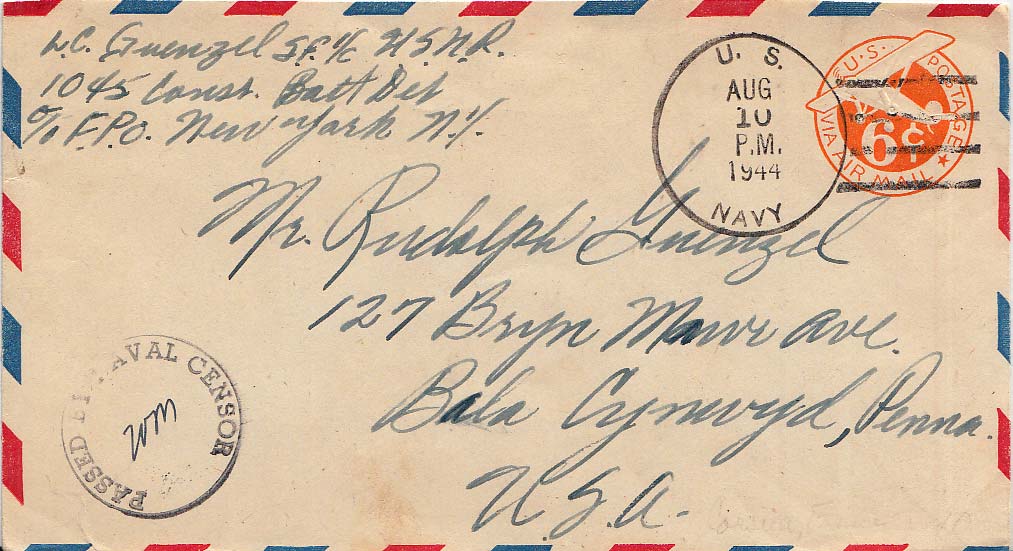 L.C. Guenzel S.F. 1/c U.S.N.R.
1045 Const. Batt Det
c/o F.P.O. New York N.Y.
U. S.
AUG
10
P.M.
1944
NAVY
U.S. POSTAGE
VIA AIR MAIL
6¢
Mr. Rudolph Guenzel
127 Bryn Mawr Ave.
Bala Cynwyd, Penna.
U.S.A.
PASSED BY NAVAL CENSOR